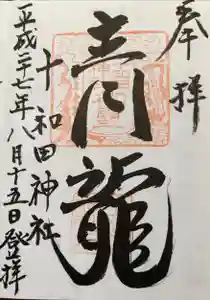 奉拝
青龍
十和田神社
平成二十七年八月十五日登拝